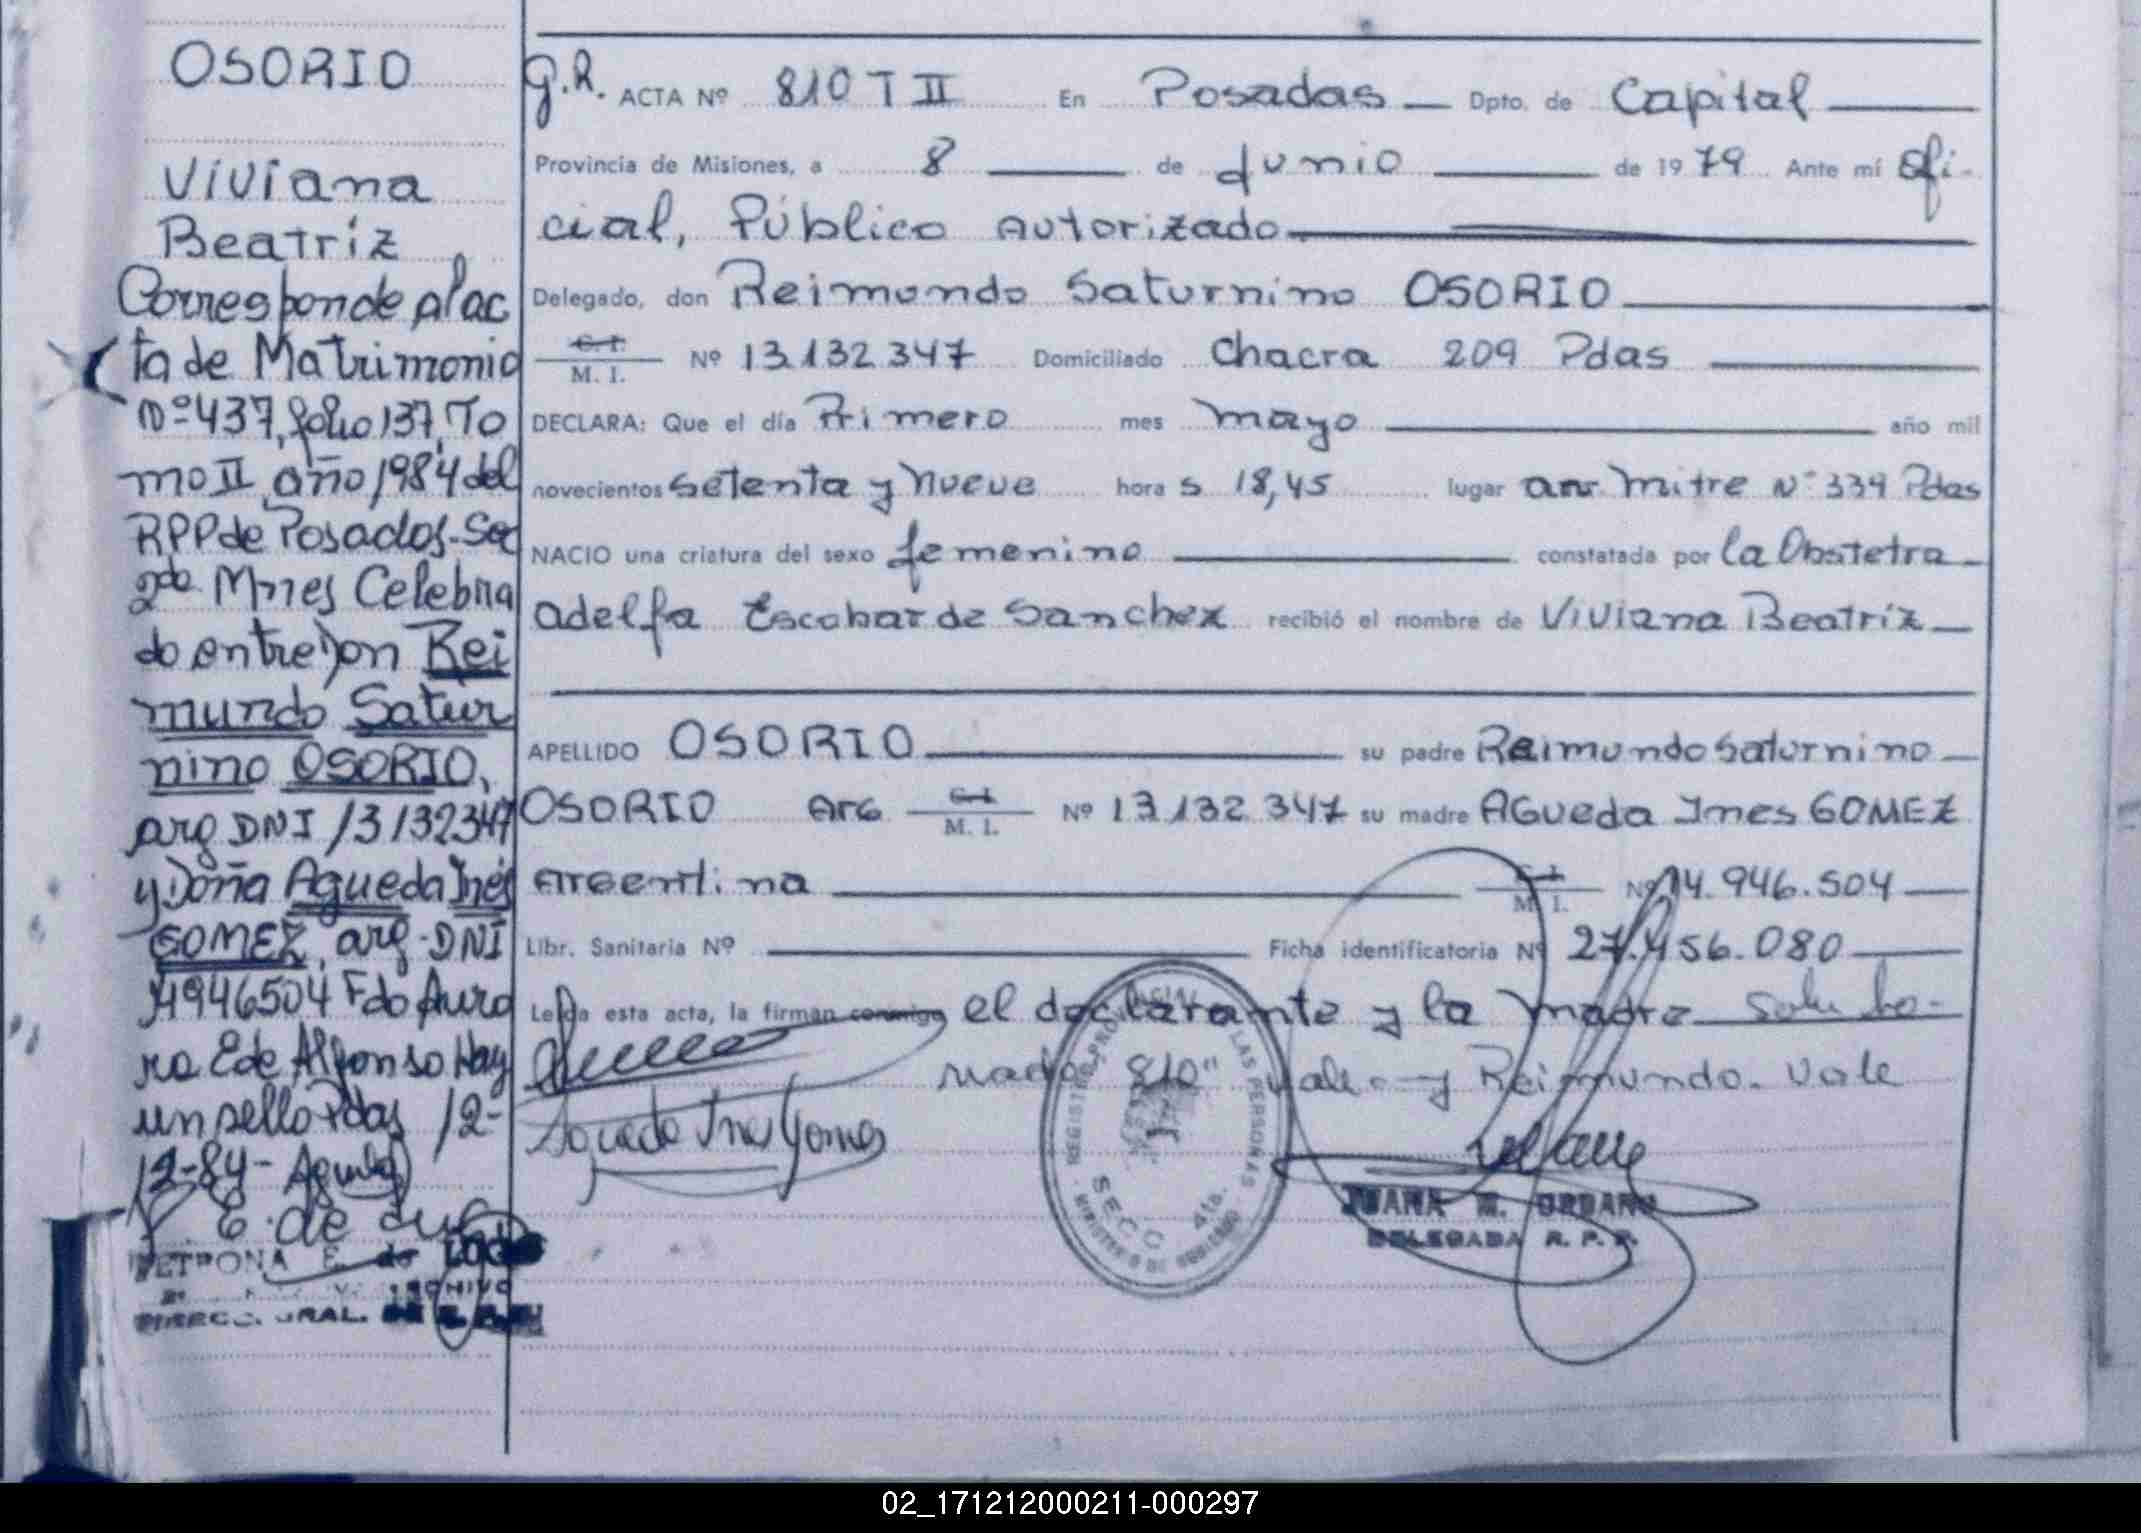 OSORIO
Viviana
Beatriz
Corresponde al ac
ta de Matrimonio
Nº 437, folio 137, To
mo II, año 1984 del
RPP de Posadas - Sec
2da Mnes Celebra
do entre Don Rei
mundo Satur
nino OSORIO,
arg DNI 13132347
y Doña Agueda Inés
GOMEZ, arg. DNI
14946504 Fdo Auro
ra E de Alfonso Hay
un sello Pdas 12-
12-84-
PETRONA E. de
ARCHIVO
DIRECC. GRAL.
G.R. ACTA Nº 810 T II En Posadas Dpto. de Capital
Provincia de Misiones, a 8 de Junio de 1979 Ante mí Ofi-
cial, Público Autorizado
Delegado, don Reimundo Saturnino OSORIO
C. I. M. I. Nº 13.132.347 Domiciliado Chacra 209 Pdas
DECLARA: Que el día Primero mes mayo año mil
novecientos setenta y Nueve hora s 18,45 lugar av. Mitre Nº 339 Pdas
NACIO una criatura del sexo femenino constatada por la Obstetra
Adelfa Escobar de Sanchez recibió el nombre de Viviana Beatriz
APELLIDO OSORIO su padre Reimundo Saturnino
OSORIO Arg C. I. M. I. Nº 13.132.347 su madre AGueda Ines GOMEZ
Argentina C. I. M. I. Nº 14.946.504
Libr. Sanitaria Nº Ficha identificatoria Nº 27.456.080
Leída esta acta, la firman conmigo el declarante y la madre
810" Vale - y Reimundo. Vale
Agueda Ines Gomes
REGISTRO PROVINCIAL DE LAS PERSONAS
SECC 4ta.
MINISTERIO DE GOBIERNO
JUANA
DELEGADA R. P. P.
02_171212000211-000297